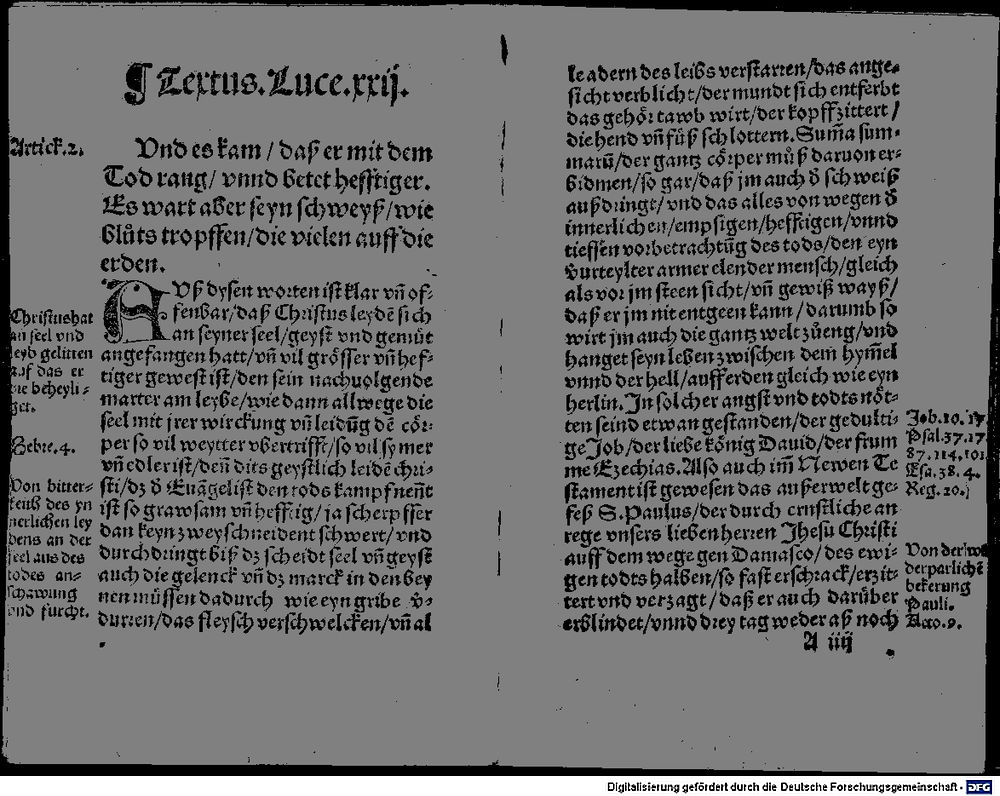 ¶ Textus. Luce. xxij.
Artick. 2.
Vnd es kam / daß er mit dem
Tod rang / vnnd betet hefftiger.
Es wart aber seyn schweyß / wie
blůts tropffen / die vielen auff die
erden.
AVß dysen worten ist klar vñ of-
fenbar / daß Christus leydẽ sich
an seyner seel / geyst vnd gemüt
angefangen hatt / vñ vil grösser vñ hef-
tiger gewest ist / den sein nachuolgende
marter am leybe / wie dann allwege die
seel mit jrer wirckung vñ leidũg dẽ cör-
per so vil weytter vbertrifft / so vil sy mer
vñ edler ist / deñ dits geystlich leidẽ chri-
sti / dz ð Euãgelist den tods kampf neñt
ist so grawsam vñ hefftig / ja scherpffer
dan keyn zweyschneident schwert / vnd
durchdringt biß dz scheidt seel vñ geyst
auch die gelenck vñ dz marck in den bey
nen müssen dadurch wie eyn gribe v̈-
durren / das fleysch verschwelcken / vñ al
Christus hat
an seel vnd
leyb gelitten
auf das er
sie beheyli-
get.
Hebre. 4.
Von bitter-
keitß des yn
nerlichen ley
dens an der
seel aus des
todes an-
schawung
vnd furcht.
le adern des leibs verstarren / das ange-
sicht verblicht / der mundt sich entferbt
das gehör tawb wirt / der kopff zittert /
die hend vñ füß schlottern. Sum̃a sum-
marũ / der gantz cörper můß daruon er-
bidmen / so gar / daß jm auch ð schweiß
außdringt / vnd das alles von wegen ð
innerlichen / empsigen / hefftigen / vnnd
tieffen vorbetrachtũg des tods / den eyn
vurteylter armer elender mensch / gleich
als vor jm steen sicht / vñ gewiß wayß /
daß er jm nit entgeen kann / darumb so
wirt jm auch die gantz welt zůeng / vnd
hanget seyn leben zwischen dem hym̃el
vnnd der hell / auff erden gleich wie eyn
herlin. In solcher angst vnd todts nöt-
ten seind etwan gestanden / der gedulti-
ge Job / der liebe könig Dauid / der frum
me Ezechias. Also auch im̃ Newen Te
stament ist gewesen das außerwelt ge-
feß S. Paulus / der durch ernstliche an
rege vnsers lieben herren Jhesu Christi
auff dem wege gen Damasco / des ewi-
gen todts halben / so fast erschrack / erzit-
tert vnd verzagt / daß er auch darüber
erblindet / vnnd drey tag weder aß noch
A iiij
Job. 10. 17
Psal. 37. 17
87. 114. 101
Esa. 38. 4.
Reg. 20.
Von der
derparlichẽ
bekerung
Pauli.
Acto. 9.
Digitalisierung gefördert durch die Deutsche Forschungsgemeinschaft - DFG